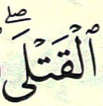 ٱلْقَتْلَىۖ